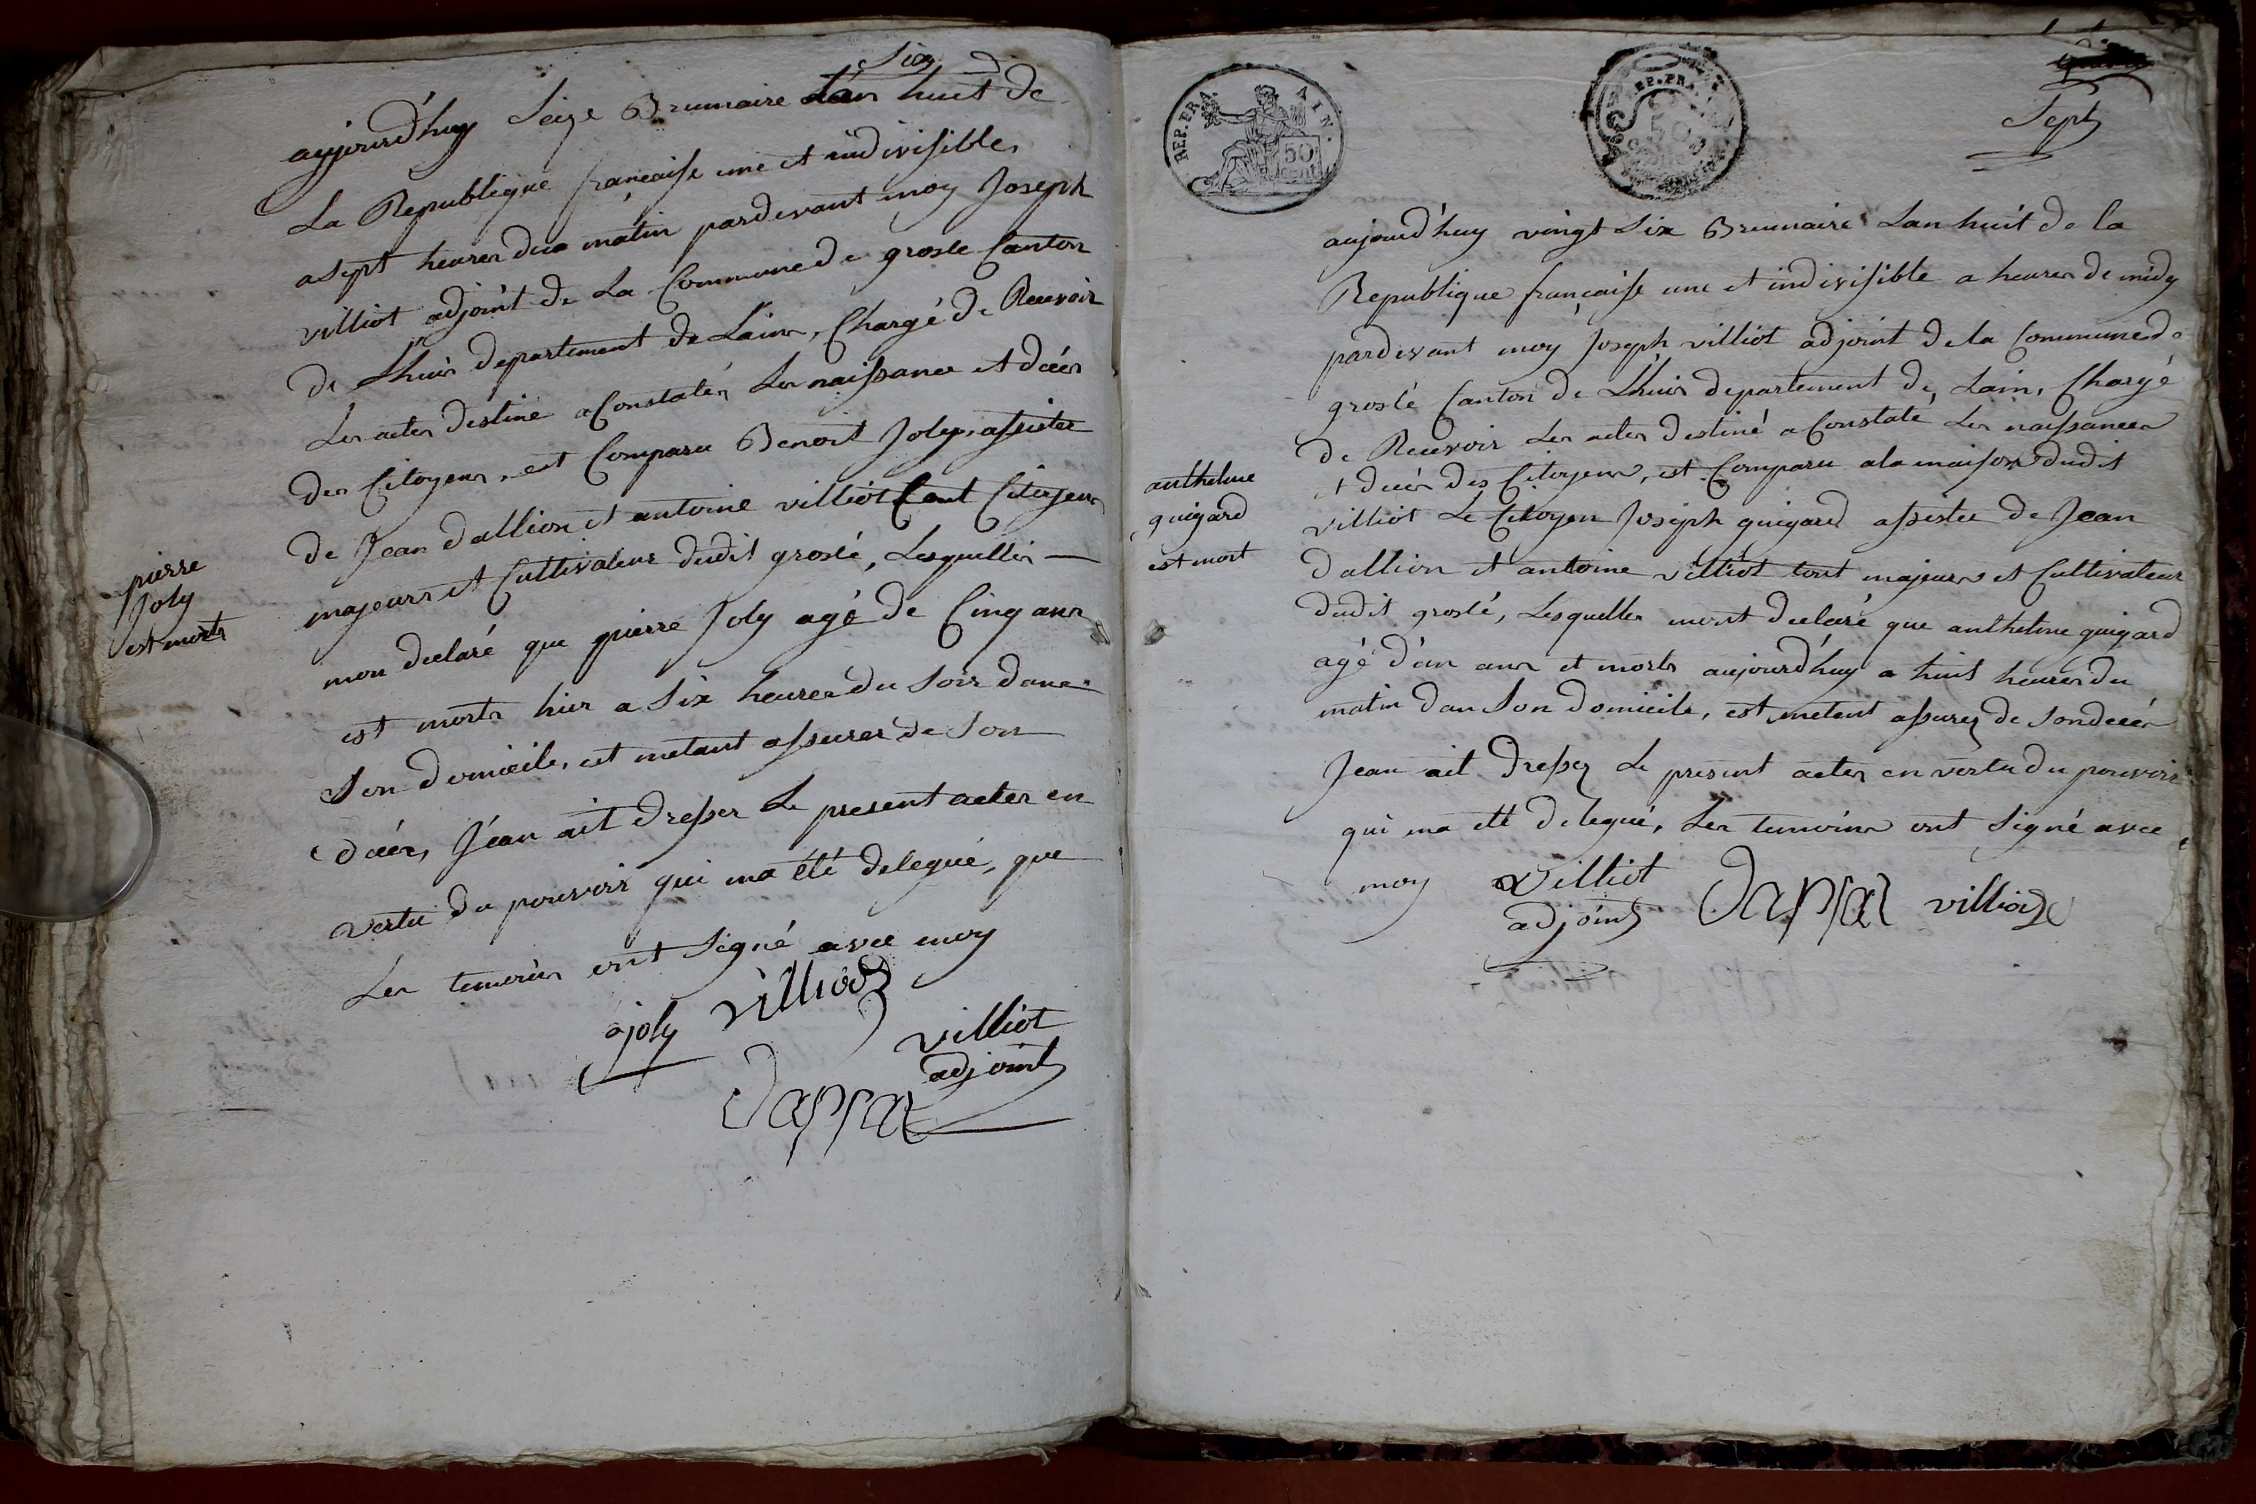 Six
aujourd'huy Seize Brumaire L'an huit de
La Republique française une et indivisible,
a sept heures du matin pardevant moy Joseph
villiot adjoint de La Commune de groslé Canton
de Lhuis departement de Lain, Chargé de Recevoir
Les actes destiné a Constatér Les naissance et décés
des Citoyens, est Comparu Benoit Joly, assistée
de Jean dallion et antoine villiot tout Citoyens
majeurs et Cultivateur dudit groslé, Lesquelles
mon declaré que pierre Joly agé de Cinq ans
est morts hier a Six heures du Soir dans
Son domicile, et metant assurer de Son
décés, Jéan ait dresser Le present actes en
vertu du pouvoir qui ma été delegué, que
Les temoins ont Signé avec moy
joly villiot
villiot
adjoint
pierre
Joly
est morts
REP. FRA. AIN.
50
CENT.
REP. FRA.
50
Sept
aujourd'huy vingt Six Brumaire Lan huit de la
Republique française une et indivisible a heures de midy
pardevant moy Joseph villiot adjoint de la Commune de
groslé Canton de Lhuis departement de Lain, Chargé
de Recevoir Les actes destiné a Constaté Les naissances
et décés des Citoyens, est Comparu a la maison dudit
villiot Le Citoyen Joseph guigard assistée de Jean
dallion et antoine villiot tout majeurs et Cultivateur
dudit groslé, Lesquelles mont declaré que anthelme guigard
agé d'un ans et morts aujourd'huy a huit heures du
matin dan Son domicile, est metant assurez de Son décés
Jean ait dressez Le present actes en vertu du pouvoir
qui ma été delegué, Les temoins ont Signé avec
moy villiot
adjoint villiot
anthelme
guigard
est mort